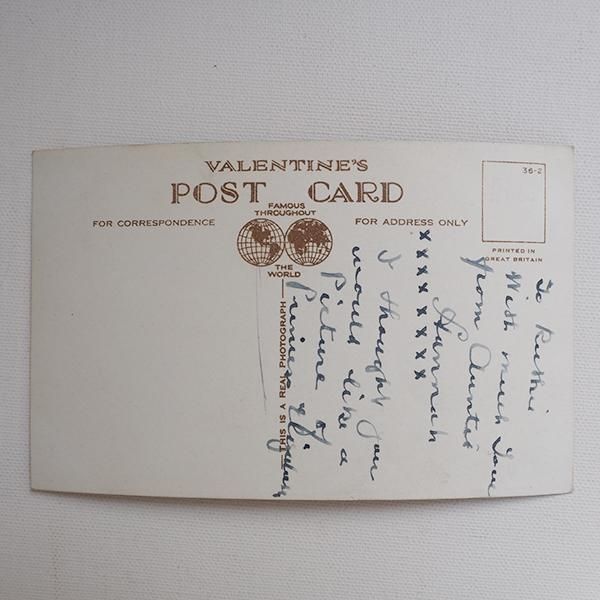 VALENTINE'S
POST CARD
FAMOUS
THROUGHOUT
THE
WORLD
FOR CORRESPONDENCE
FOR ADDRESS ONLY
36-2
PRINTED IN
GREAT BRITAIN
THIS IS A REAL PHOTOGRAPH
To Ruthie
With much Love
from Auntie
Hannah
x x x x x x x x
I thought you
would like a
Picture of
Princess